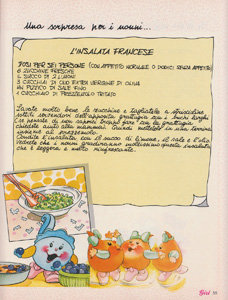 Una sorpresa per i nonni...
L'INSALATA FRANCESE
DOSI PER SEI PERSONE (CON APPETITO NORMALE O DODICI SENZA APPETITO)
6 ZUCCHINE FRESCHE
IL SUCCO DI 2 LIMONI
3 CUCCHIAI DI OLIO EXTRA VERGINE DI OLIVA
UN PIZZICO DI SALE FINO
1 CUCCHIAIO DI PREZZEMOLO TRITATO
Lavate molto bene le zucchine e tagliatele a
sottili servendovi dell'apposita grattugia con i buchi larghi
(se pensate di non sapervi con la grattugia
chiedete aiuto alla mamma). Quindi mettetele in una terrina
insieme al prezzemolo.
Condite l'insalata con il succo di limone, il sale e l'olio.
Vedrete che i nonni gradiranno moltissimo questa insalata
che è leggera e molto rinfrescante.